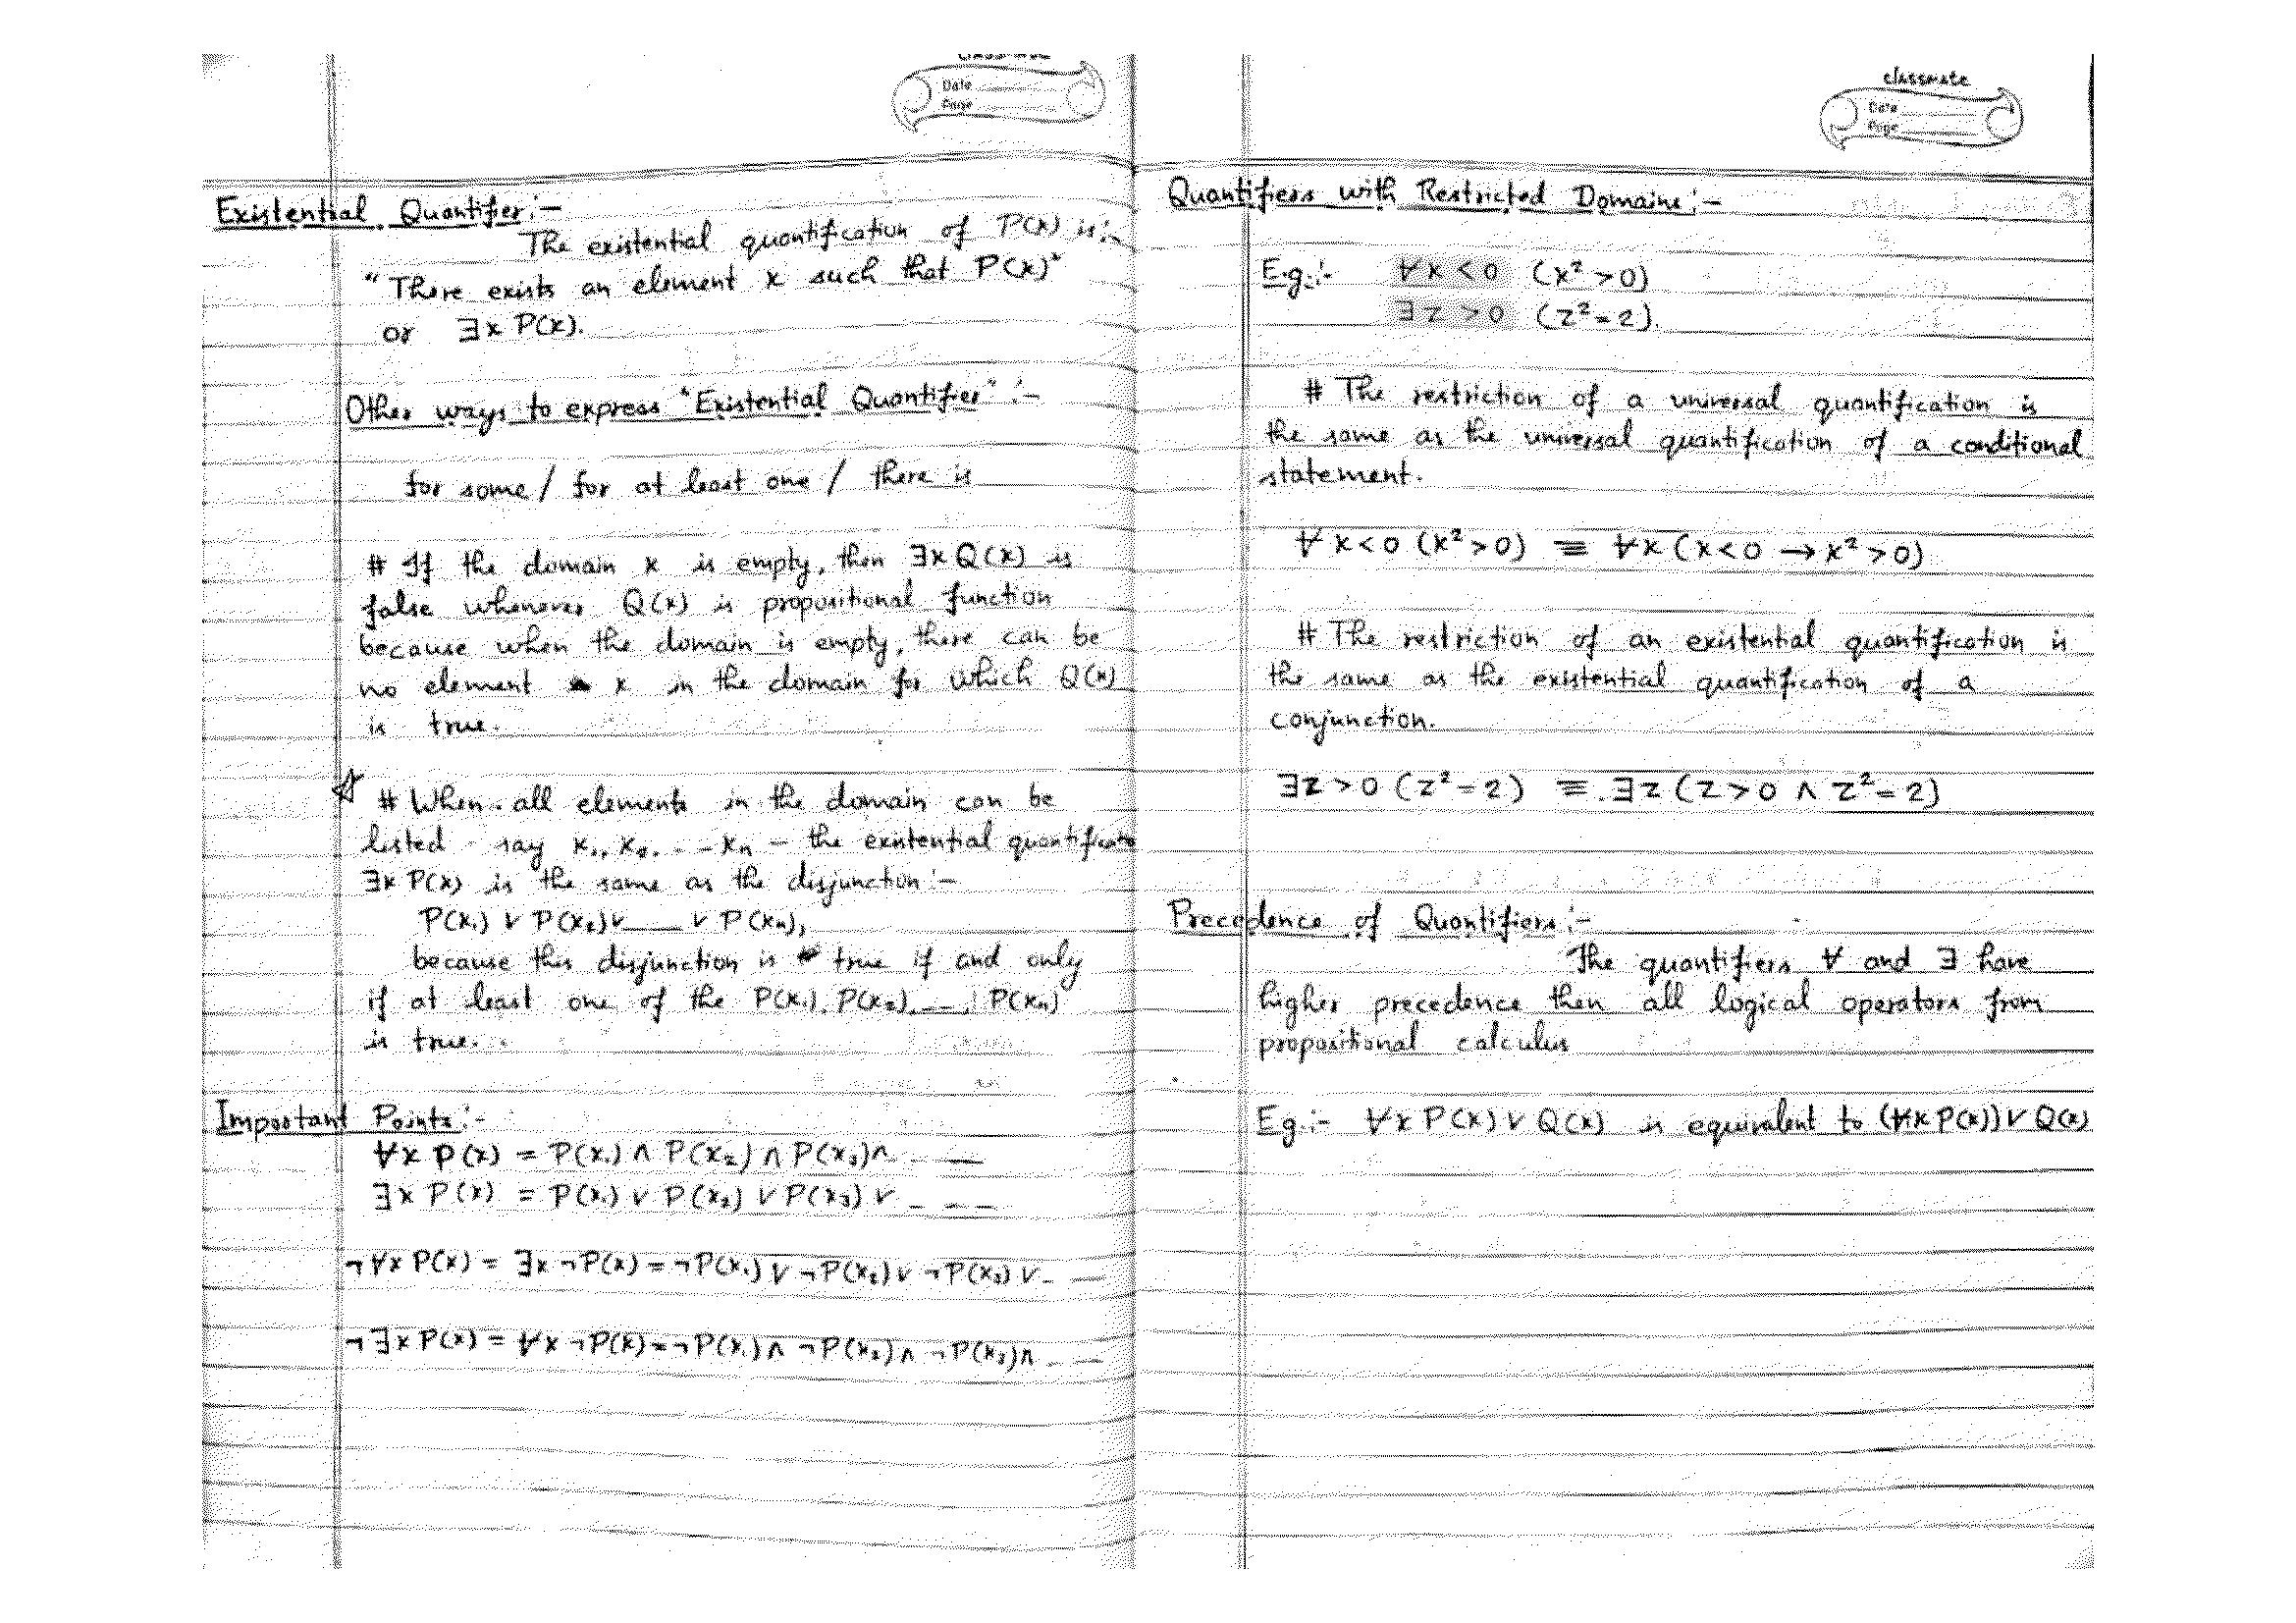 classmate
Date
Page
Existential Quantifier:-
The existential quantification of P(x) is:-
"There exists an element x such that P(x)"
or ∃x P(x).
Other ways to express "Existential Quantifier" :-
for some / for at least one / there is
# If the domain x is empty, then ∃x Q(x) is
false whenever Q(x) is propositional function
because when the domain is empty, there can be
no element x in the domain for which Q(x)
is true.
# When all elements in the domain can be
listed - say x₁, x₂, - - xₙ - the existential
∃x P(x) is the same as the disjunction:-
P(x₁) ∨ P(x₂) ∨ ___ ∨ P(xₙ),
because this disjunction is true if and only
if at least one of the P(x₁), P(x₂), ---, P(xₙ)
is true.
Important Points:-
∀x P(x) = P(x₁) ∧ P(x₂) ∧ P(x₃) ∧ - - —
∃x P(x) = P(x₁) ∨ P(x₂) ∨ P(x₃) ∨ - - -
¬∀x P(x) = ∃x ¬P(x) = ¬P(x₁) ∨ ¬P(x₂) ∨ ¬P(x₃) ∨ - —
¬∃x P(x) = ∀x ¬P(x) = ¬P(x₁) ∧ ¬P(x₂) ∧ ¬P(x₃) ∧ - —
classmate
Date
Page
Quantifiers with Restricted Domains:-
E.g.:- ∀x < 0 (x² > 0)
∃z > 0 (z² = 2).
# The restriction of a universal quantification is
the same as the universal quantification of a conditional
statement.
∀x<0 (x²>0) ≡ ∀x (x<0 → x²>0)
# The restriction of an existential quantification is
the same as the existential quantification of a
conjunction.
∃z>0 (z²=2) ≡ ∃z (z>0 ∧ z²=2)
Precedence of Quantifiers:-
The quantifiers ∀ and ∃ have
higher precedence then all logical operators from
propositional calculus
Eg:- ∀x P(x) ∨ Q(x) is equivalent to (∀x P(x)) ∨ Q(x)